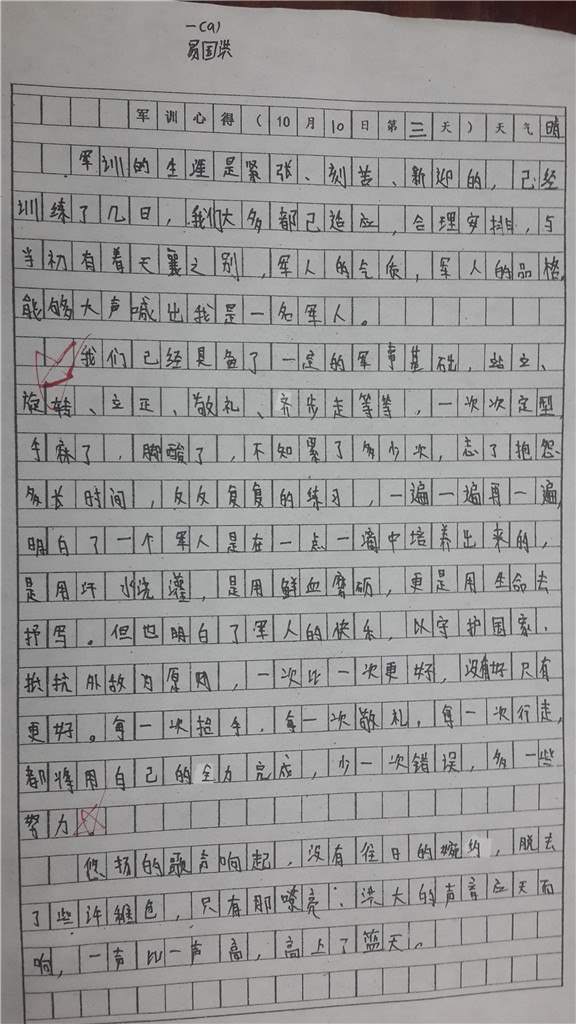 一(9)
易国洪
军训心得(10月10日第三天)天气晴
军训的生涯是紧张、刻苦、新迎的,已经
训练了几日,我们大多都已适应,合理安排,与
当初有着天襄之别,军人的气质,军人的品格,
能够大声喊出我是一名军人。
我们已经具备了一定的军事基础,站立、
旋转、立正、敬礼、齐步走等等,一次次定型,
手麻了,脚酸了,不知累了多少次,忘了抱怨、
多长时间,反反复复的练习,一遍一遍再一遍,
明白了一个军人是在一点一滴中培养出来的,
是用汗水浇灌,是用鲜血磨砺,更是用生命去
抒写。但也明白了军人的快乐,以守护国家、
抵抗外敌为原则,一次比一次更好,没有好只有
更好。每一次抬手,每一次敬礼,每一次行走,
都将用自己的全力完成,少一次错误,多一些
努力
悠扬的歌声响起,没有往日的婉约,脱去
了些许稚色,只有那嘹亮、洪大的声音应天而
响,一声比一声高,高上了蓝天。